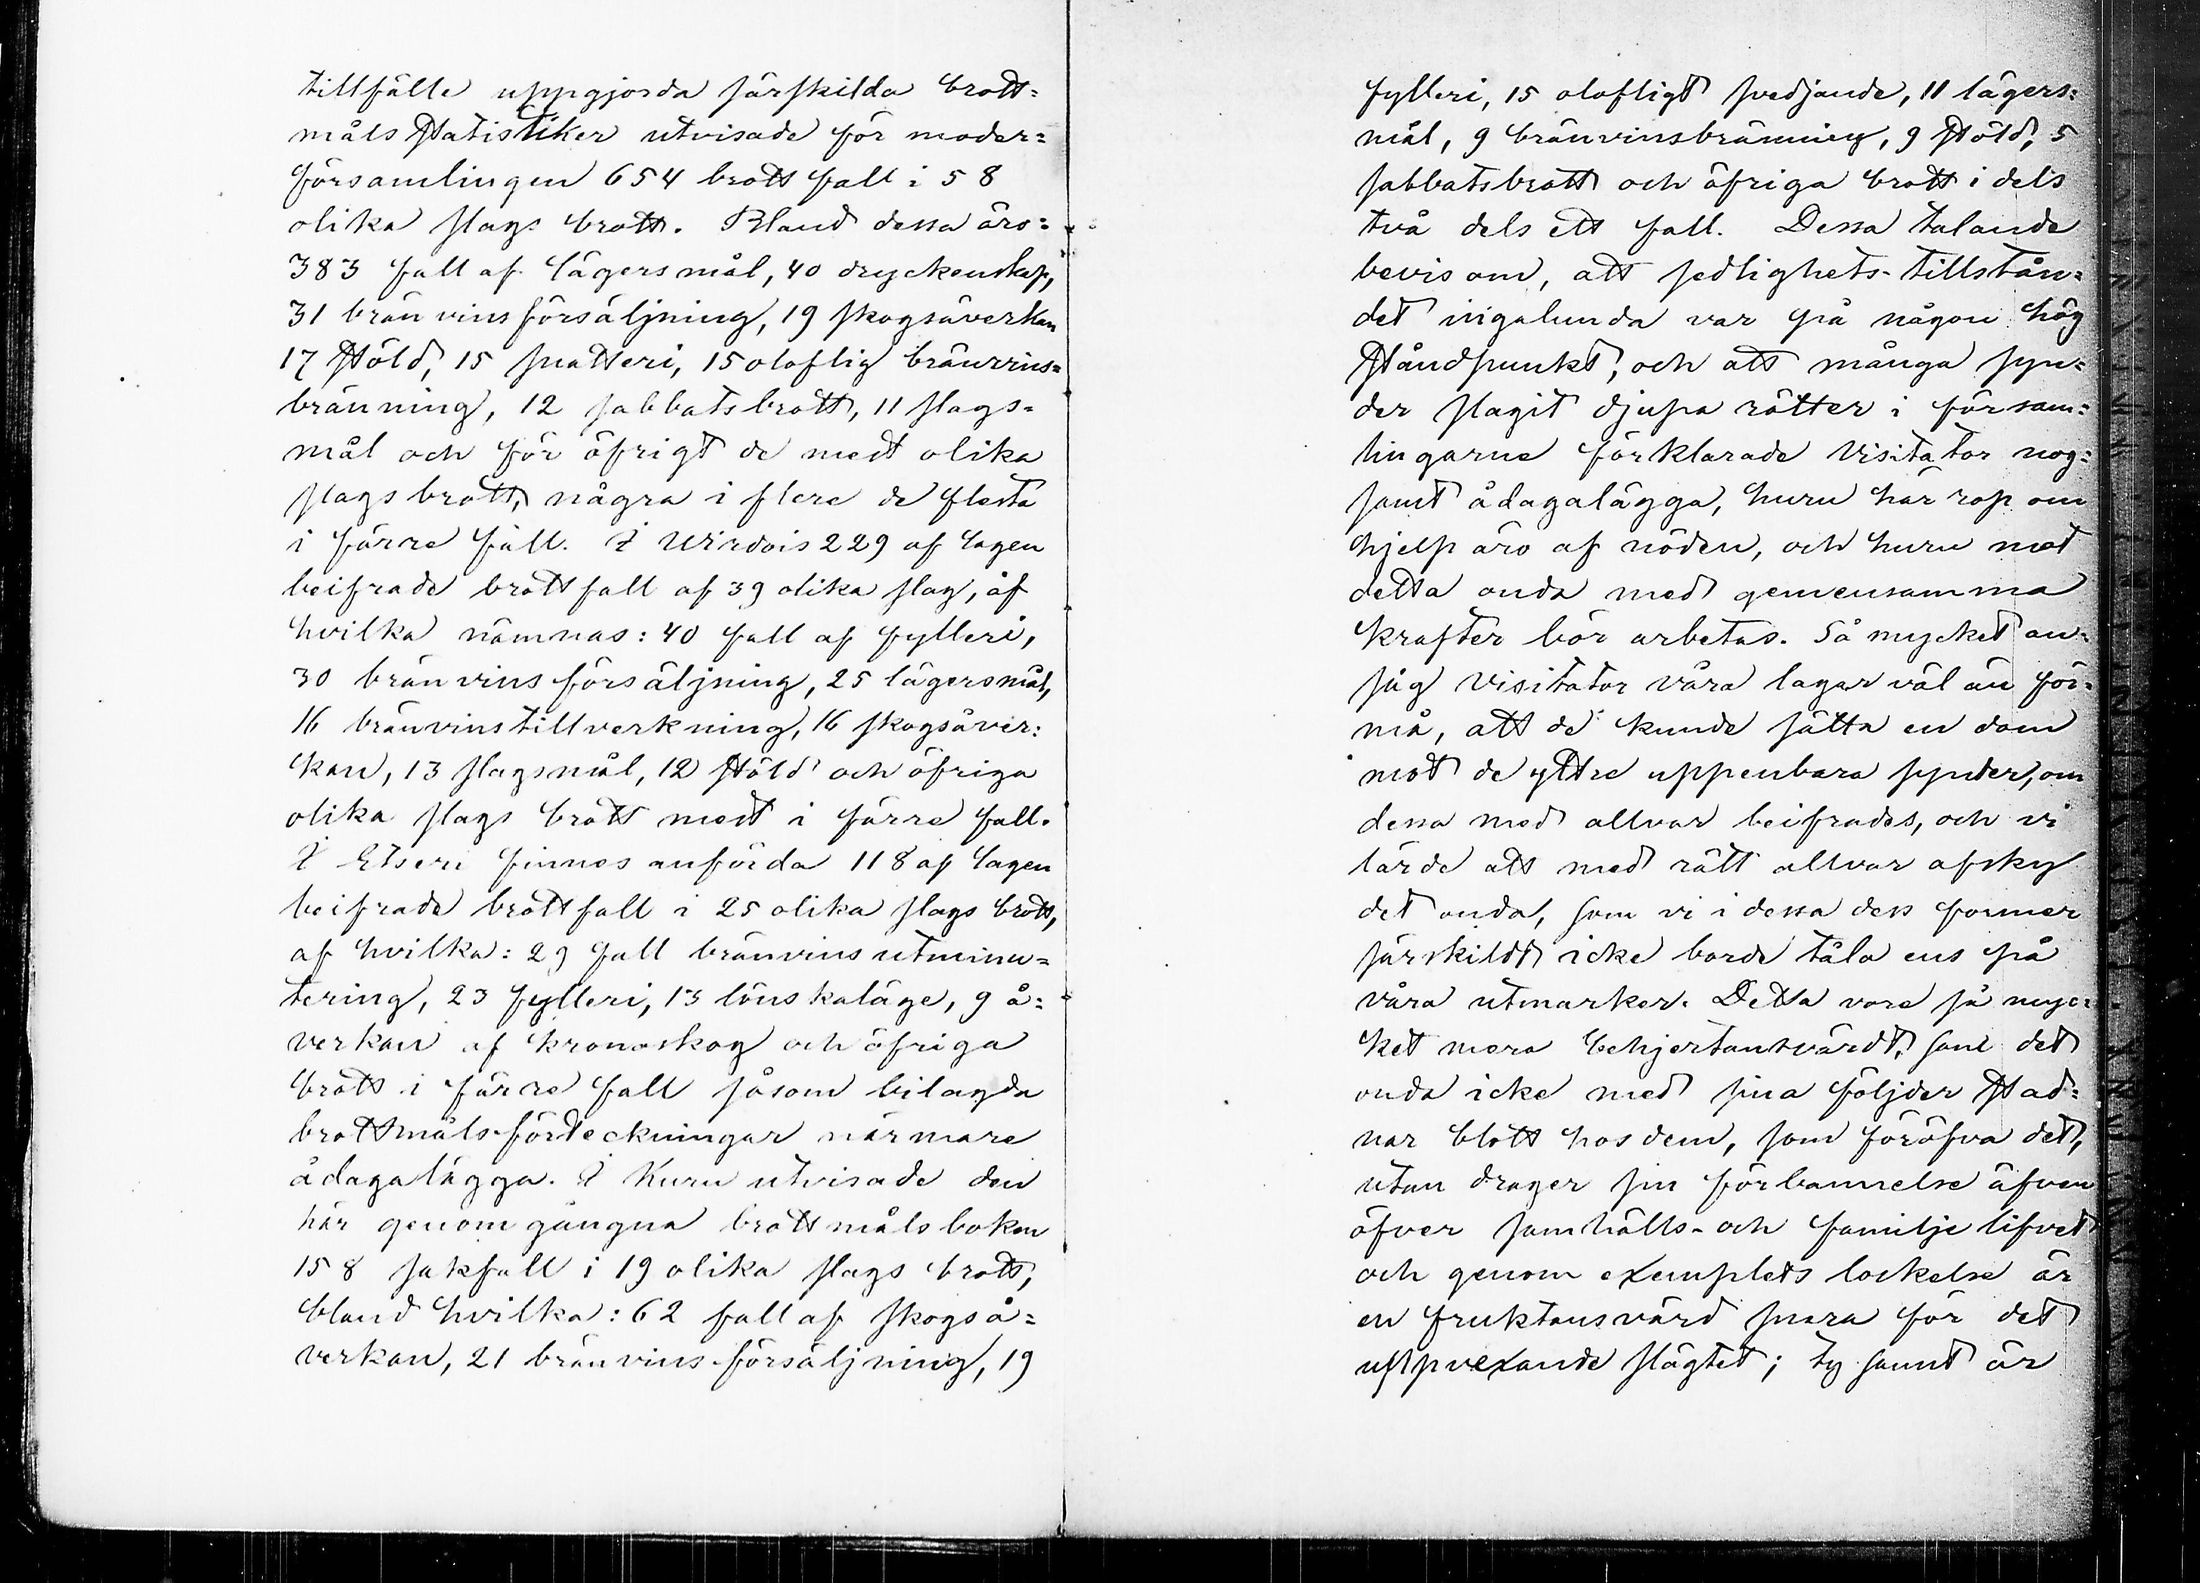 tillfälle uppgjorda särskilda brott=
måls statistiker utvisade för moder=
församlingen 654 brott fall i 58
olika slags brott. Bland dessa äro=
383 fall af lägersmål, 40 dryckenskap,
31 bränvins försäljning, 19 skogsåverkan
17 stöld, 15 snatteri, 15 oloflig bränvins=
bränning, 12 sabbatsbrott, 11 slags=
mål och för öfrigt de mest olika
slags brott, några i flere de flesta
i färre fall. I Wirdois 229 af lagen
beifrade brott fall af 39 olika slag, af
hvilka nämnas: 40 fall af fylleri,
30 bränvins försäljning, 25 lägersmål,
16 bränvinstillverkning, 16 skogsåver=
kan, 13 slagsmål, 12 stöld och öfriga
olika slags brott mest i färre fall.
I Etseri finnes anförda 118 af lagen
beifrade brottfall i 25 olika slags brott,
af hvilka: 29 fall bränvins utminu=
tering, 23 fylleri, 13 lönskaläge, 9 å=
verkan af kronoskog och öfriga
brott i färre fall såsom bilagda
brottmåls-förteckningar närmare
ådagalägga. I Kuru utvisade den
här genomgångna brottmålsboken
158 sakfall i 19 olika slags brott,
bland hvilka: 62 fall af skogså=
verkan, 21 bränvins försäljning, 19
fylleri, 15 olofligt svedjande, 11 lägers=
mål, 9 bränvinsbränning, 9 stöld, 5
sabbatsbrott och öfriga brott i dels
två dels ett fall. Dessa talande
bevis om, att sedlighets-tillstån=
det ingalunda var på någon hög
ståndpunkt, och att många syn=
der slagit djupa rötter i försam=
lingarne förklarade Visitator nog=
samt ådagalägga, huru här rop om
hjelp äro af nöden, och huru mot
detta onda med gemensamma
krafter bör arbetas. Så mycket an=
såg Visitator våra lagar väl än för=
må, att de kunde sätta en dom
mot de yttre uppenbara synder, om
dessa med allvar beifrades, och vi
lärde att med rätt allvar afsky
det onda, som vi i dessa dess former
särskildt icke borde tåla ens på
våra utmarker. Detta vore så myc=
ket mera behjertansvärdt, som det
onda icke med sina följder stad=
nar blott hos dem, som föröfva det,
utan drager sin förbannelse äfven
öfver samhälls- och familje lifvet
och genom exemplets lockelse är
en fruktansvärd snara för det
uppvexande slägtet; ty sannt är